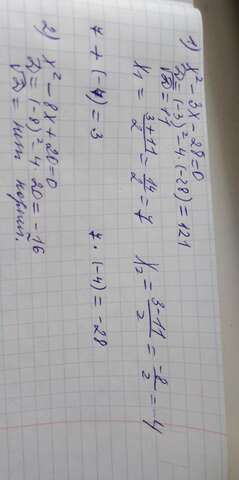 1) x² - 3x - 28 = 0
D = (-3)² - 4·(-28) = 121
√D = 11
x₁ = (3+11)/2 = 14/2 = 7 x₂ = (3-11)/2 = -8/2 = -4
7 + (-4) = 3 7 · (-4) = -28
2) x² - 8x + 20 = 0
D = (-8)² - 4·20 = -16
√D = нет корней.